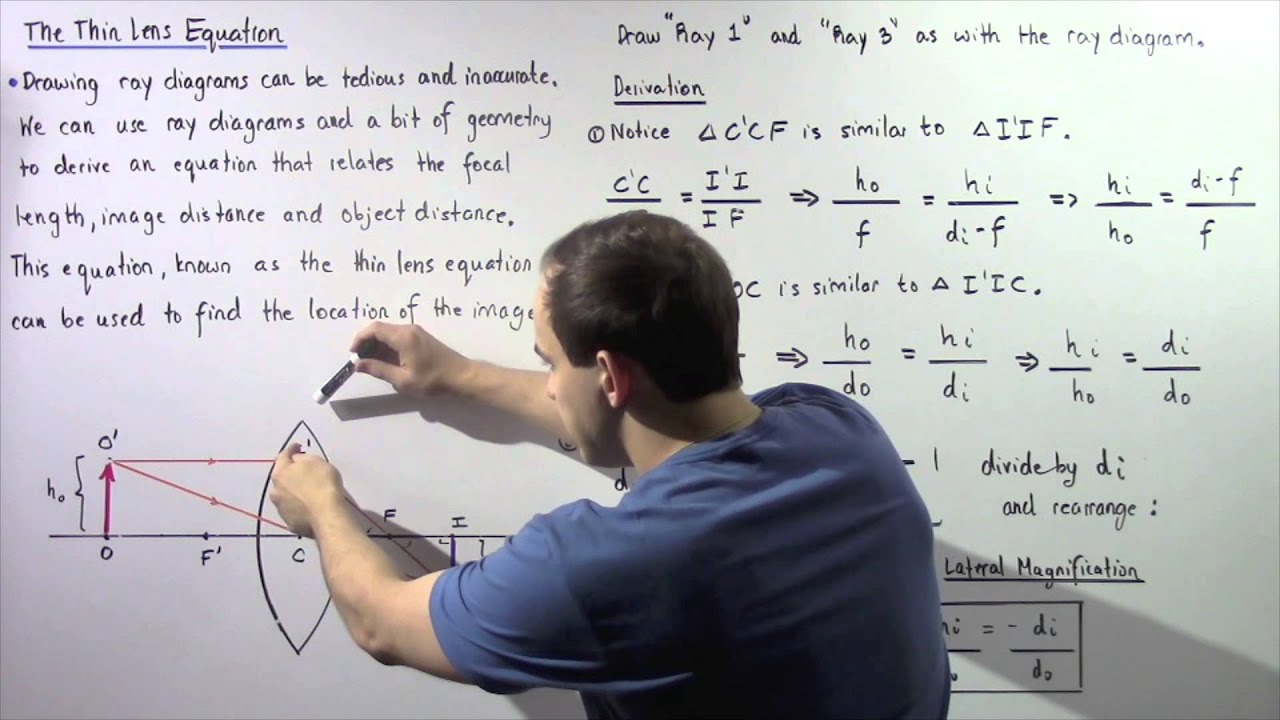 The Thin Lens Equation
• Drawing ray diagrams can be tedious and inaccurate.
We can use ray diagrams and a bit of geometry
to derive an equation that relates the focal
length, image distance and object distance.
This equation, known as the thin lens equation
can be used to find the location of the image
O'
h₀
O
F'
C
F
I
Draw "Ray 1" and "Ray 3" as with the ray diagram.
Derivation
① Notice △ C'CF is similar to △ I'IF.
C'C/ = I'I/IF ⇒ ho/f = hi/di-f ⇒ hi/ho = di-f/f
OC is similar to △ I'IC.
⇒ ho/do = hi/di ⇒ hi/ho = di/do
d
- 1 divide by di
and rearrange :
Lateral Magnification
hi = - di/do